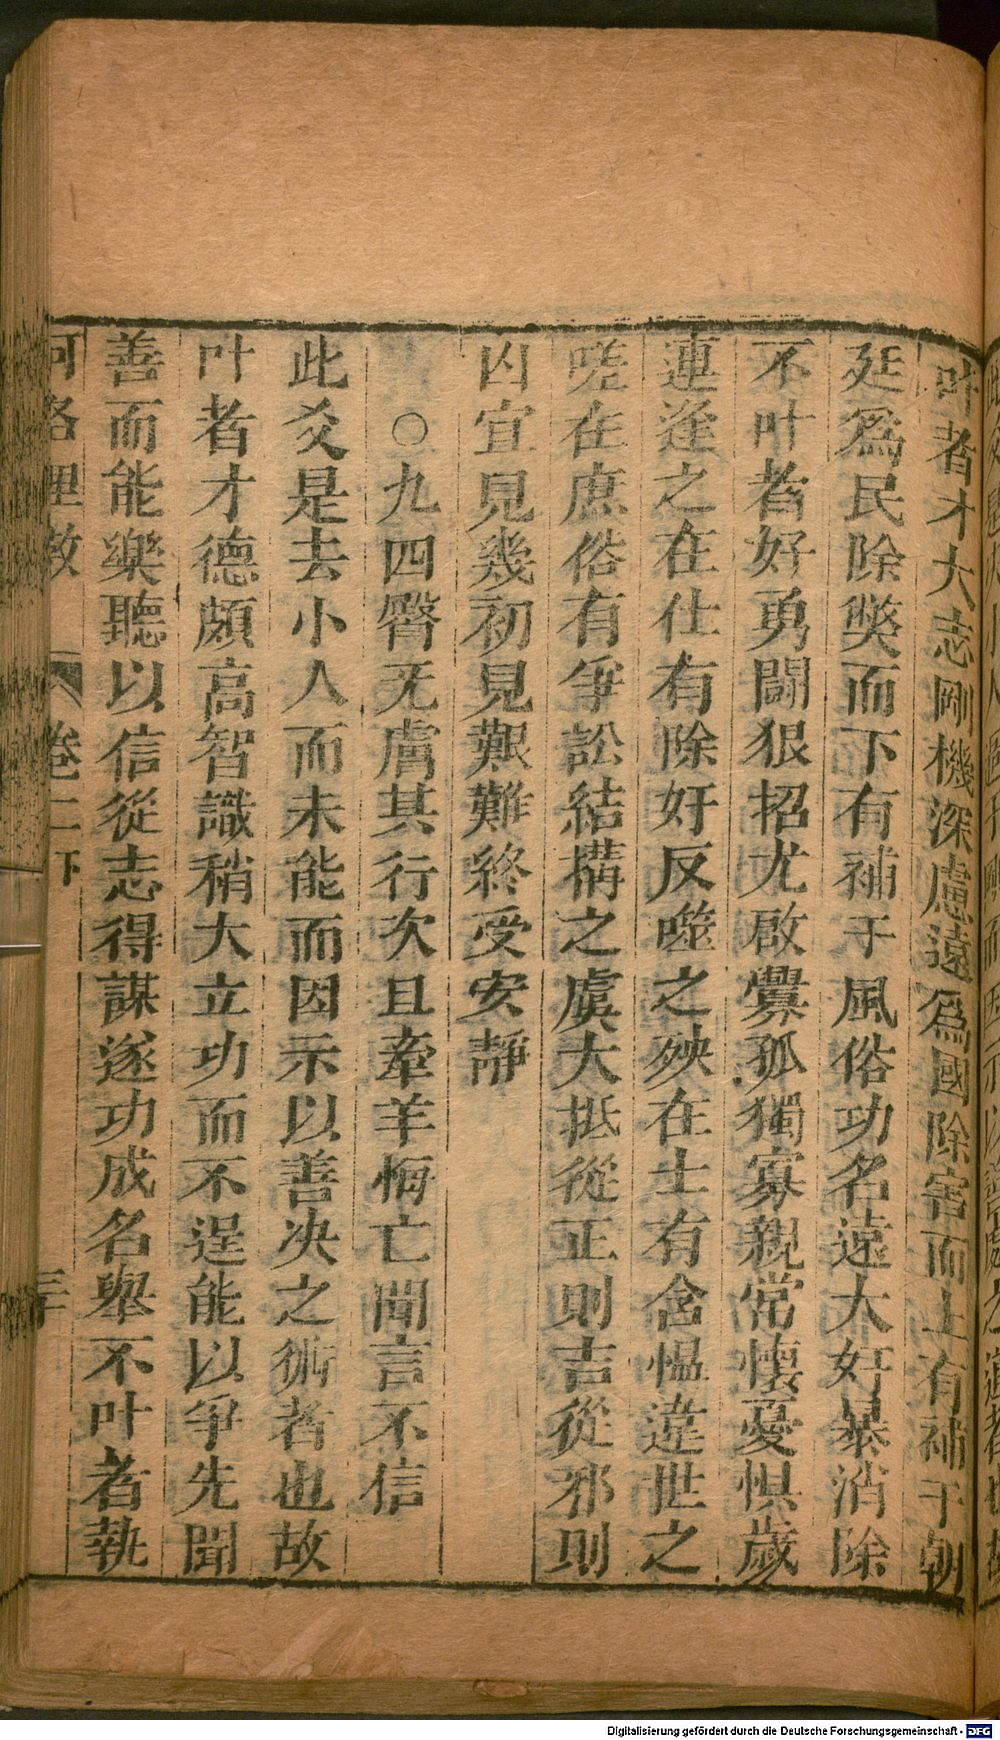 叶者才大志剛機深慮遠爲國除害而上有補于朝
廷爲民除獘而下有補于風俗功名遠大奸暴消除
不叶者好勇闘狠招尤啟釁孤獨寡親常懷憂惧歲
運逢之在仕有除奸反噬之殃在士有含愠違世之
嗟在庶俗有爭訟結搆之虞大抵從正則吉從邪則
凶宜見幾初見艱難終受安靜
○九四臀无膚其行次且牽羊悔亡聞言不信
此爻是去小人而未能而因示以善决之術者也故
叶者才德頗高智識稍大立功而不逞能以爭先聞
善而能樂聽以信從志得謀遂功成名舉不叶者執
河洛理数 卷二下 三十
Digitalisierung gefördert durch die Deutsche Forschungsgemeinschaft - DFG